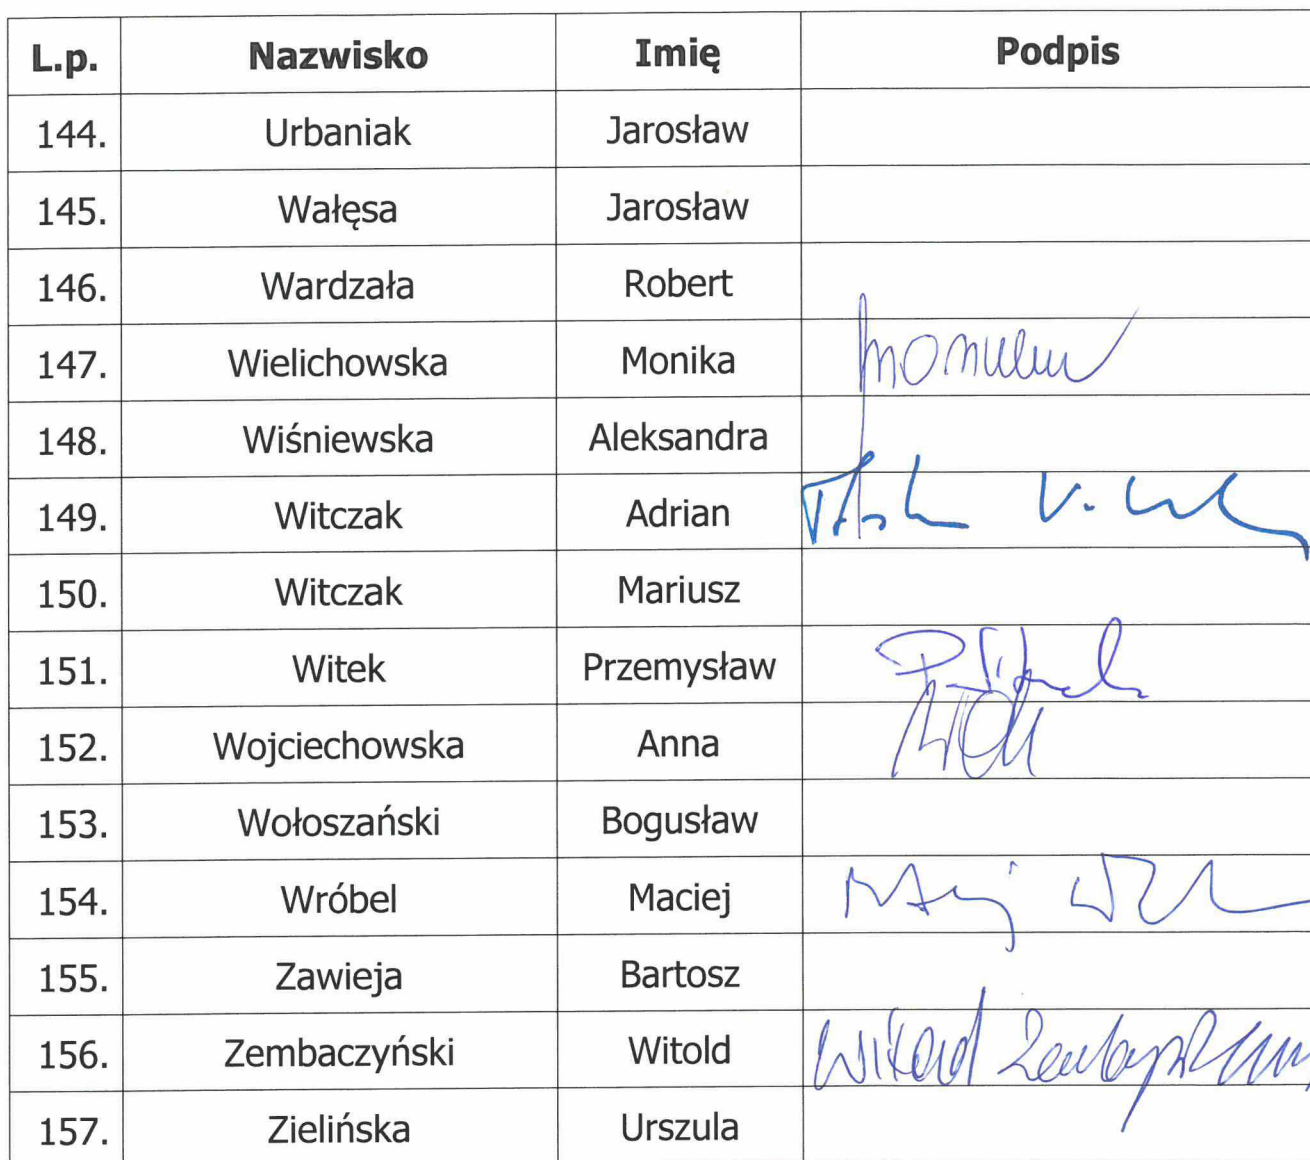 L.p. Nazwisko Imię Podpis
144. Urbaniak Jarosław
145. Wałęsa Jarosław
146. Wardzała Robert
147. Wielichowska Monika
148. Wiśniewska Aleksandra
149. Witczak Adrian
150. Witczak Mariusz
151. Witek Przemysław
152. Wojciechowska Anna
153. Wołoszański Bogusław
154. Wróbel Maciej
155. Zawieja Bartosz
156. Zembaczyński Witold Witold
157. Zielińska Urszula